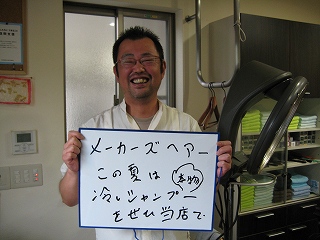 メーカーズヘアー
この夏は本物
冷しシャンプー
をぜひ当店で